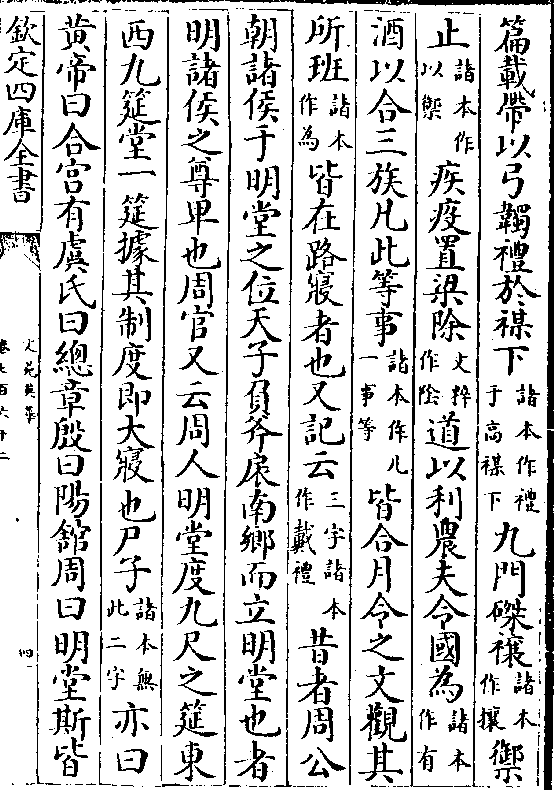 篇載帶以弓韣禮於禖下諸本作禮于高禖下九門磔禳諸本作攘禦
止諸本作以禦疾疫置梁除文粹作陰道以利農夫令國為諸本作有
酒以合三族凡此等事諸本作凡一事等皆合月令之文觀其
所班諸本作為皆在路寢者也又記云三字諸本作戴禮昔者周公
朝諸侯于明堂之位天子負斧扆南鄉而立明堂也者
明諸侯之尊卑也周官又云周人明堂度九尺之筵東
西九筵堂一筵據其制度即大寢也尸子諸本無此二字亦曰
黄帝曰合宮有虞氏曰總章殷曰陽舘周曰明堂斯皆
欽定四庫全書
文苑英華
卷七百六十二
四